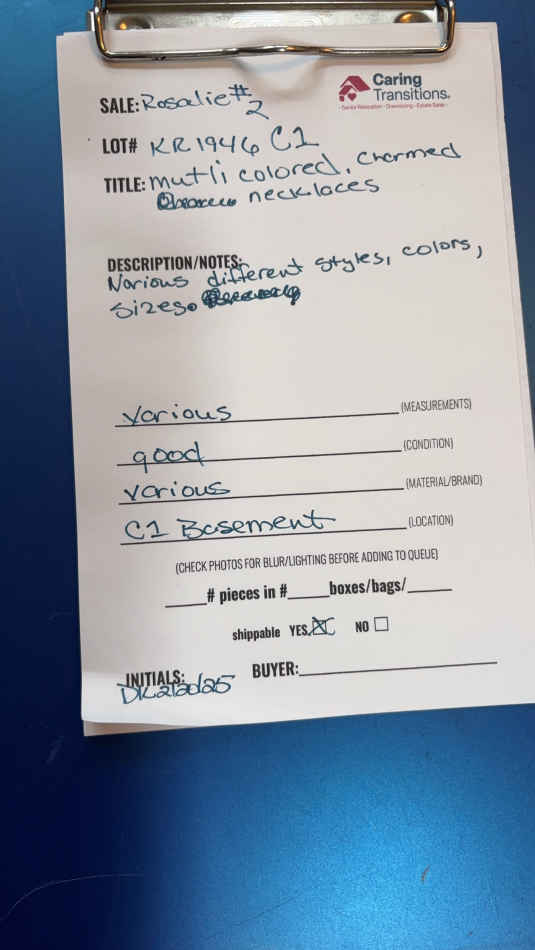 Caring
Transitions®
SALE: Rosalie #2
LOT# KR1946 C1
TITLE: mutli colored, charmed
necklaces
DESCRIPTION/NOTES:
Various different styles, colors,
sizes.
various (MEASUREMENTS)
good (CONDITION)
various (MATERIAL/BRAND)
C1 Basement (LOCATION)
(CHECK PHOTOS FOR BLUR/LIGHTING BEFORE ADDING TO QUEUE)
____# pieces in #____boxes/bags/____
shippable YES ☒ NO ☐
INITIALS: BUYER: